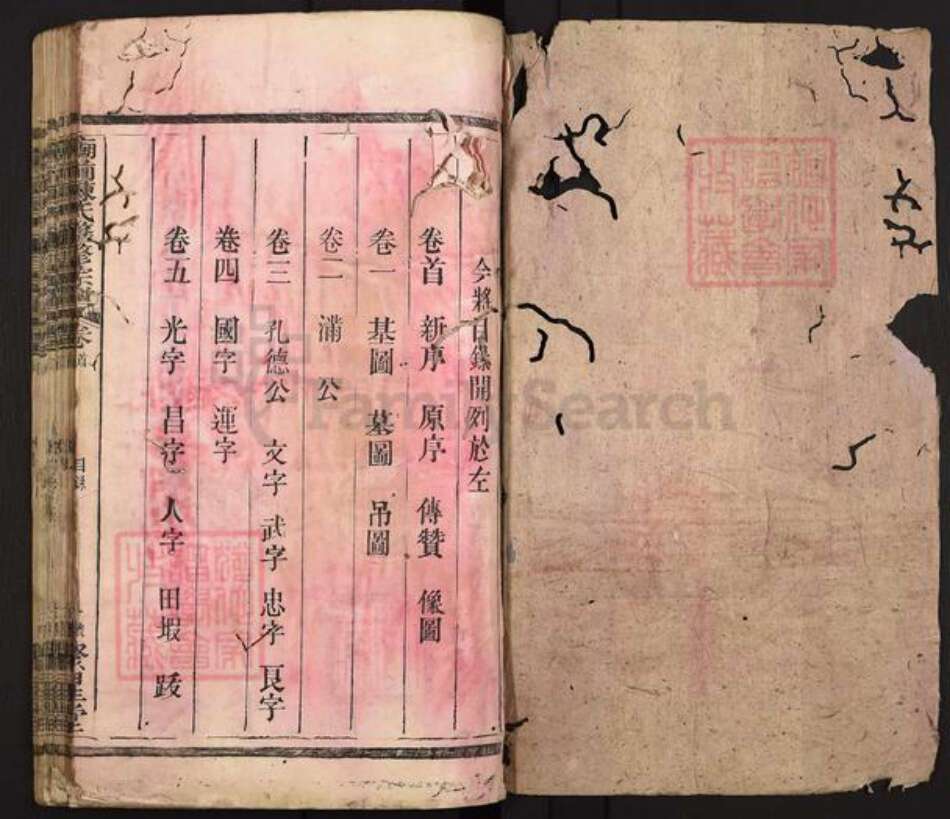 今將目錄開列於左
卷首 新序 原序 傳贊 像圖
卷一 基圖 墓圖 吊圖
卷二 滿公
卷三 孔德公 文字 武字 忠字 良字
卷四 國字 運字
卷五 光字 昌字 人字 田嘏 跋
陳氏 修宗 卷首
目錄
FamilySearch